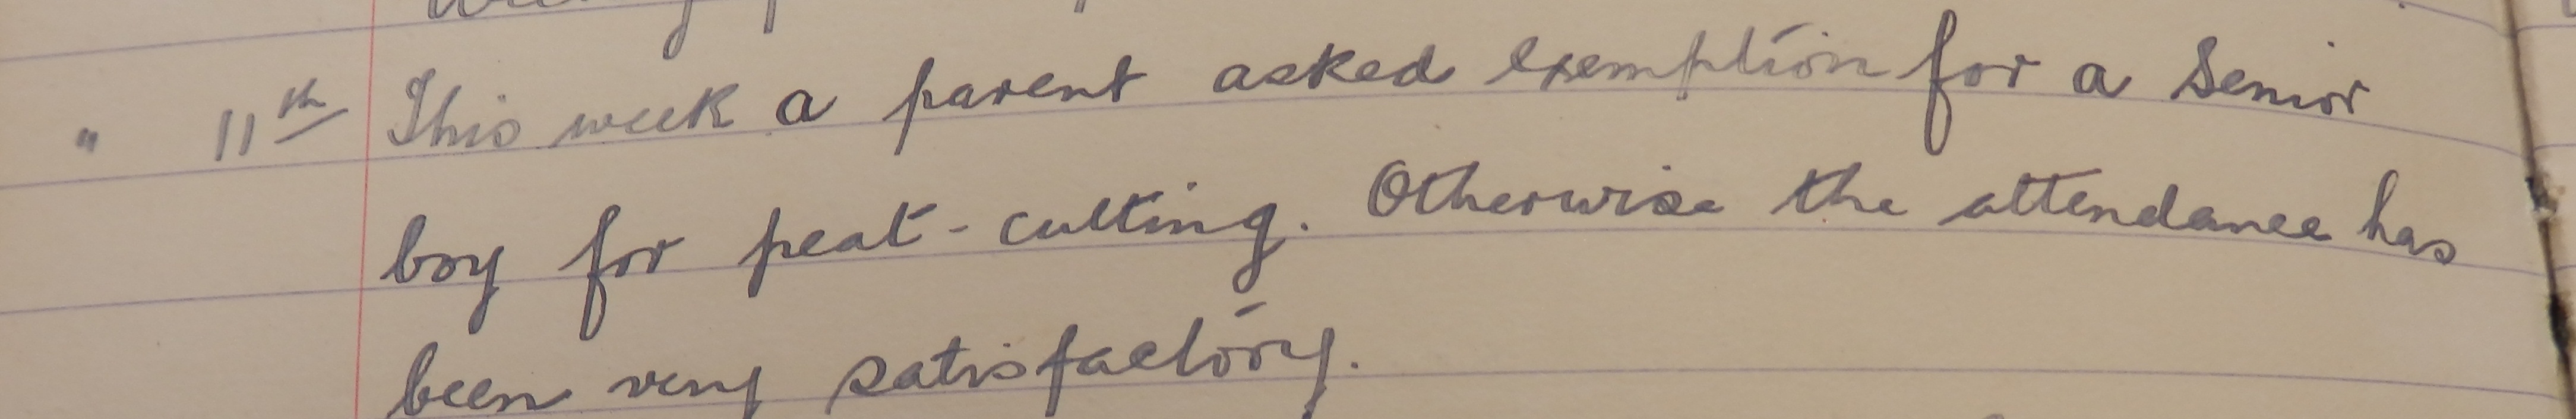 " 11th This week a parent asked exemption for a Senior
boy for peat-cutting. Otherwise the attendance has
been very satisfactory.